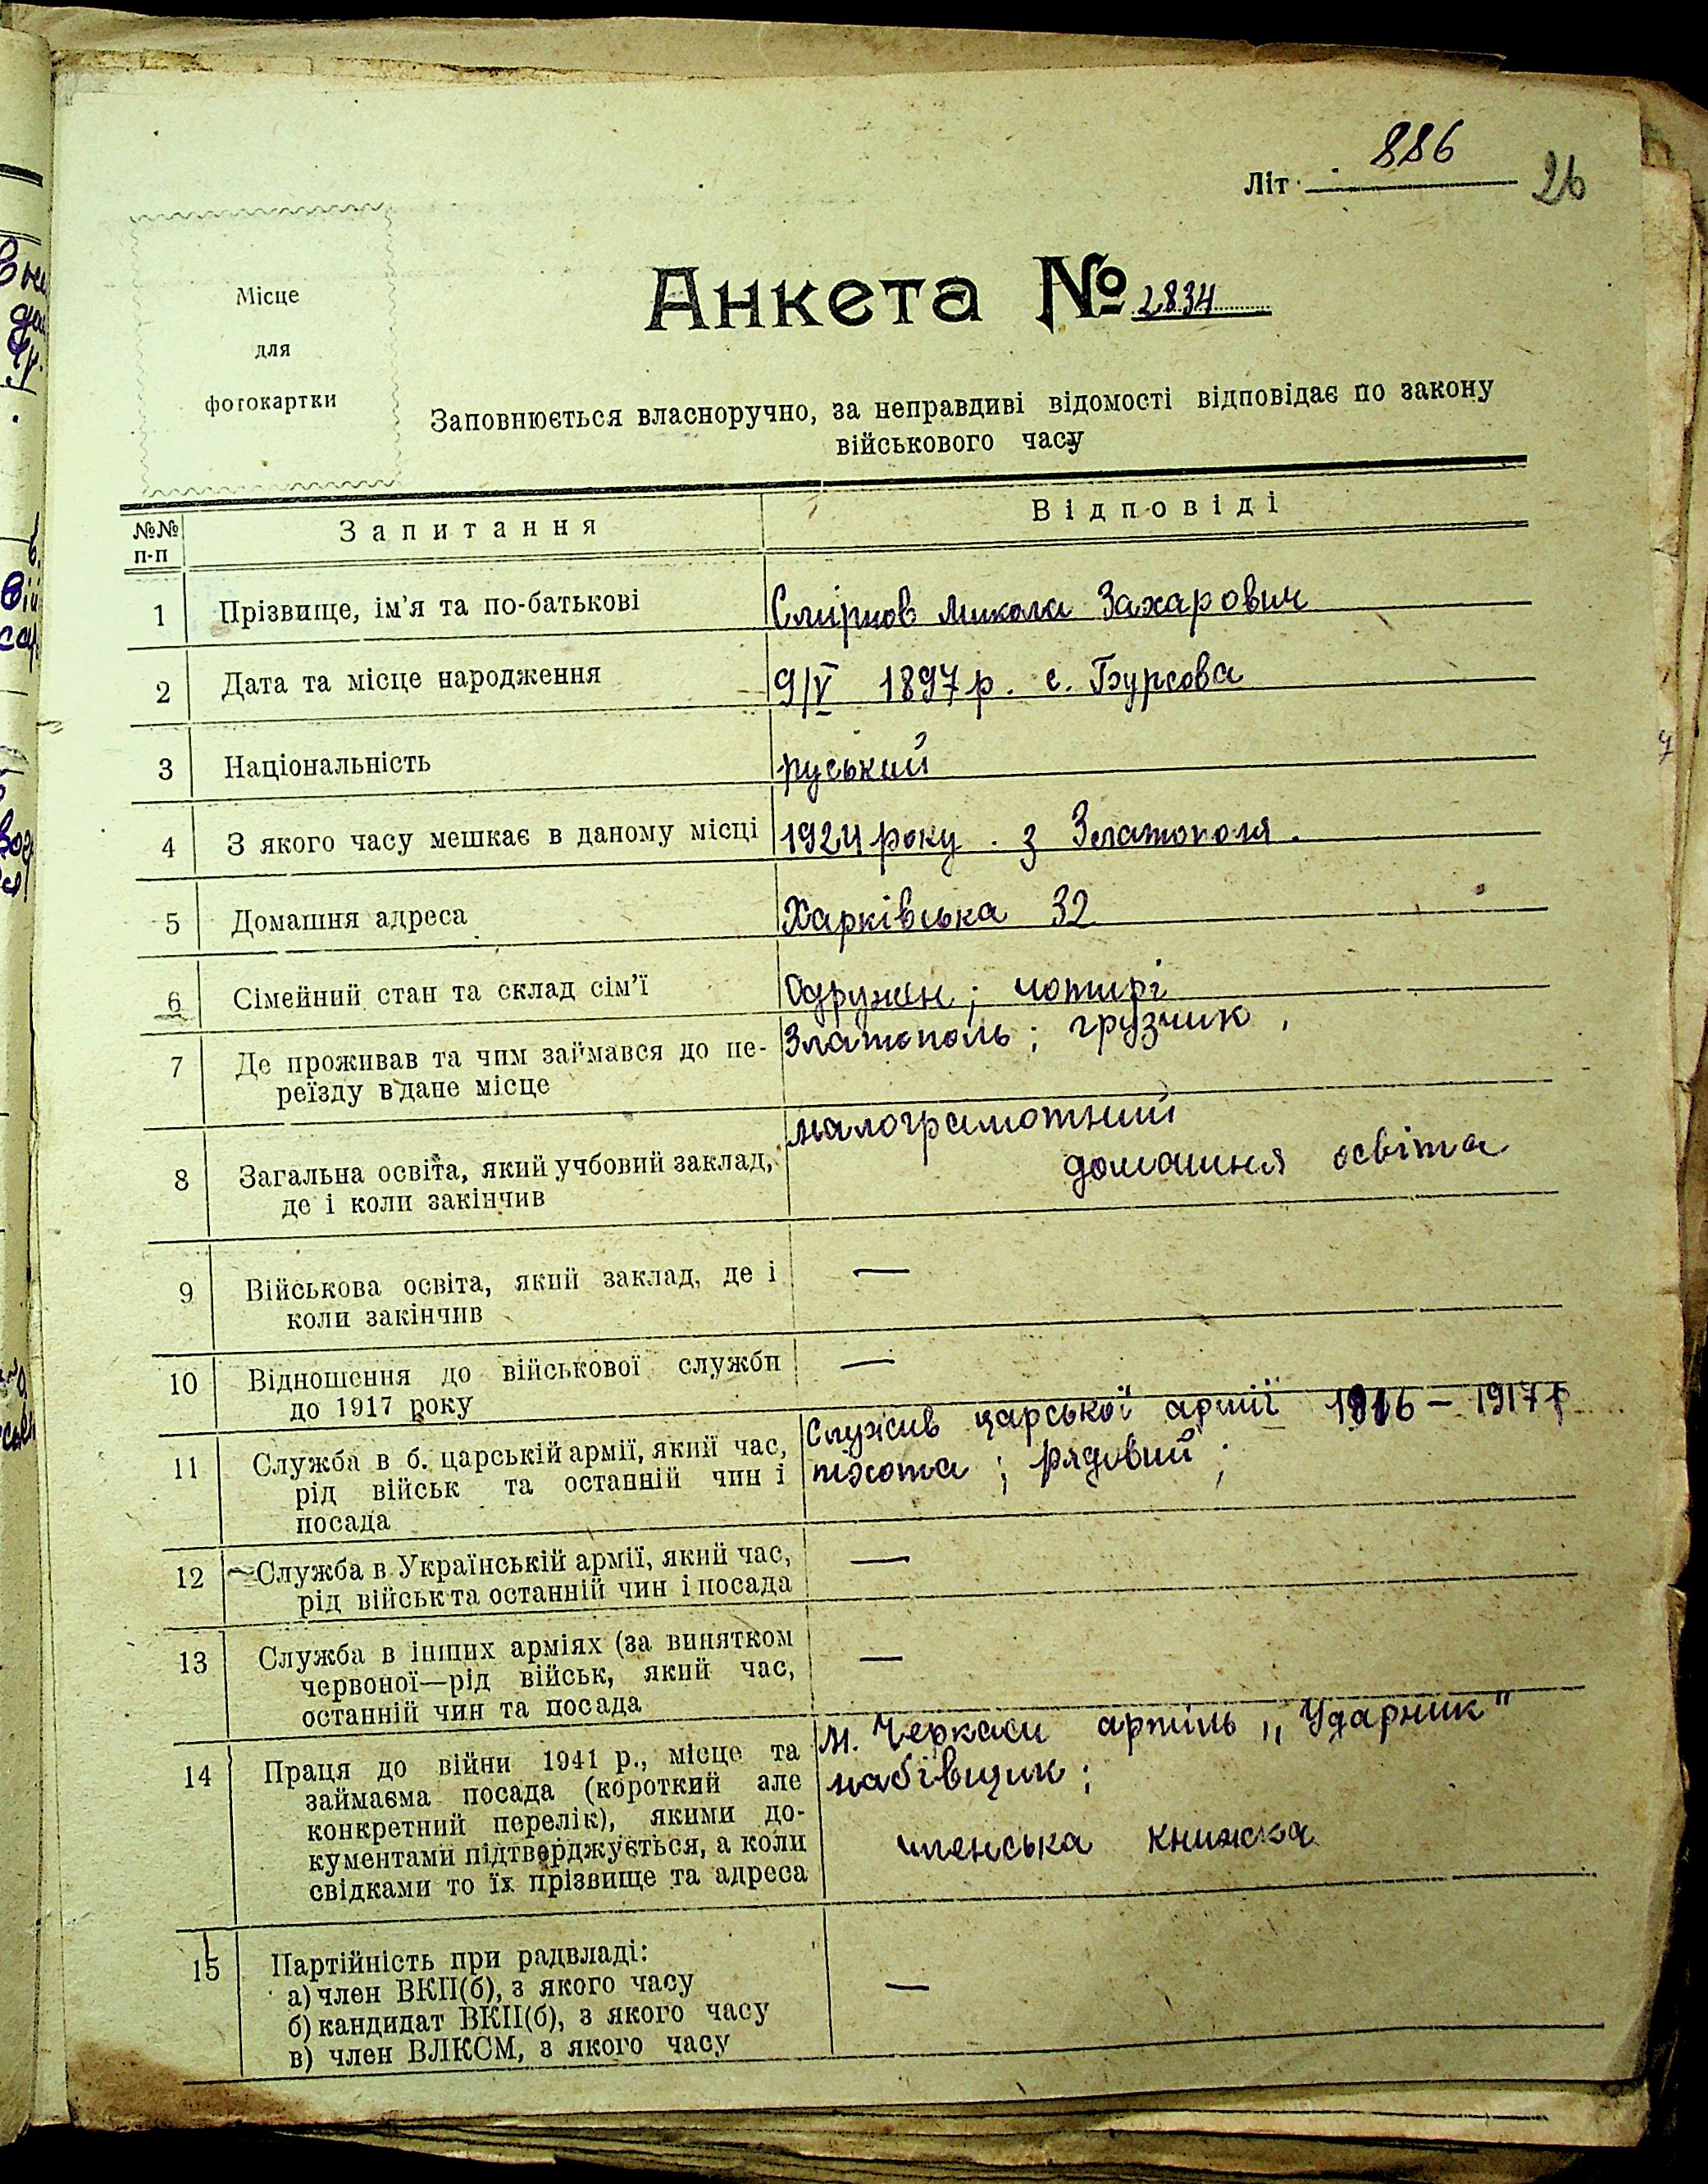 Літ. 886 26
Місце
для
фотокартки
Анкета № 2834
Заповнюється власноручно, за неправдиві відомості відповідає по закону
військового часу
№№ п-п
Запитання
Відповіді
1
Прізвище, ім'я та по-батькові
Смірнов Микола Захарович
2
Дата та місце народження
9/V 1897 р. с. Бурсова
3
Національність
руський
4
З якого часу мешкає в даному місці
1924 року. з Златополя.
5
Домашня адреса
Харківська 32
6
Сімейний стан та склад сім'ї
Одружен; чотирі
7
Де проживав та чим займався до пе-
реїзду в дане місце
Златополь; грузчик,
8
Загальна освіта, який учбовий заклад,
де і коли закінчив
малограмотний
домашня освіта
9
Військова освіта, який заклад, де і
коли закінчив
—
10
Відношення до військової служби
до 1917 року
—
11
Служба в б. царській армії, який час,
рід військ та останній чин і
посада
Служив царської армії 1916 – 1917 р
піхота; рядовий;
12
Служба в Українській армії, який час,
рід військ та останній чин і посада
—
13
Служба в інших арміях (за винятком
червоної—рід військ, який час,
останній чин та посада
—
14
Праця до війни 1941 р., місце та
займаєма посада (короткий але
конкретний перелік), якими до-
кументами підтверджується, а коли
свідками то їх прізвище та адреса
м. Черкаси артіль „Ударник"
набівщик;
членська книжка
15
Партійність при радвладі:
а) член ВКП(б), з якого часу
б) кандидат ВКП(б), з якого часу
в) член ВЛКСМ, з якого часу
—